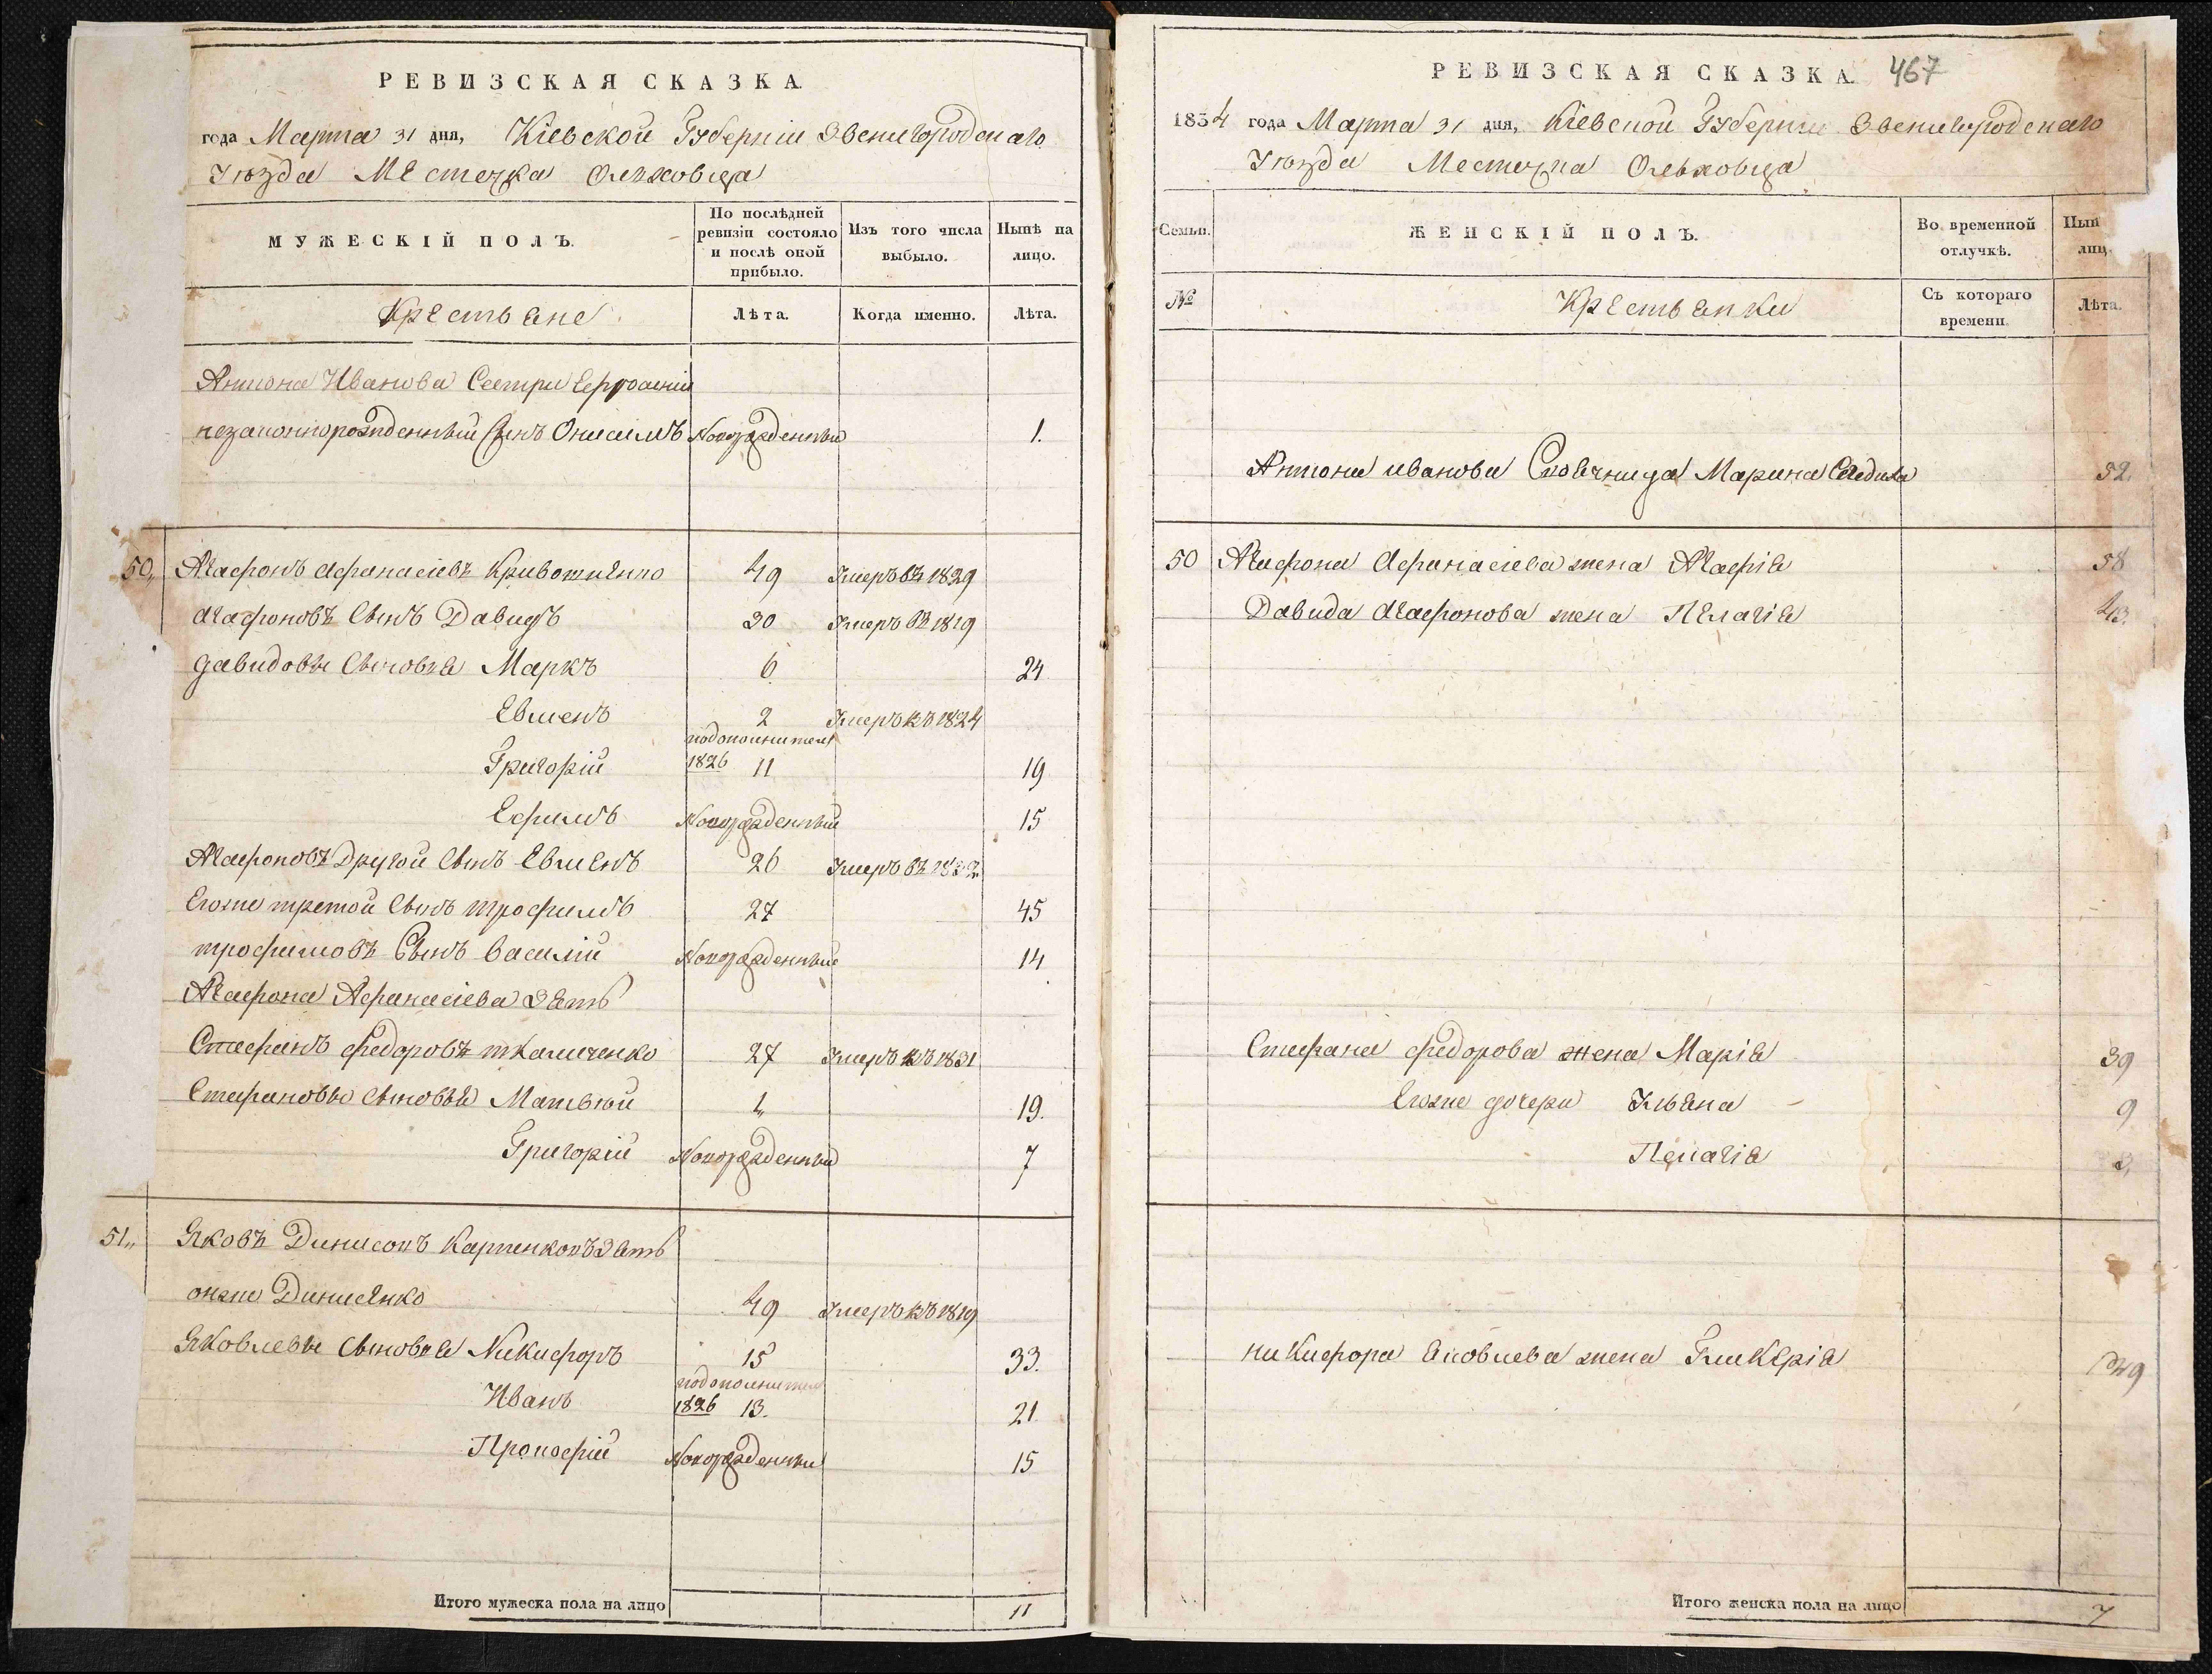 РЕВИЗСКАЯ СКАЗКА.
года Марта 31 дня, Кіевской Губерніи Звенигородскаго
Уѣзда Местечка Ольховца
МУЖЕСКІЙ ПОЛЪ.
По послѣдней ревизіи состояло и послѣ оной прибыло.
Изъ того числа выбыло.
Нынѣ на лицо.
Крестьяне
Лѣта.
Когда именно.
Лѣта.
Антона Иванова Сестри
незаконнорожденный Сынъ Онисимъ Новорожденный 1.
50 Агафонъ Афанасіевъ 49 Умеръ въ 1829
Агафоновъ Сынъ Давидъ 30 Умеръ въ 1819
Давидовы Сыновья Маркъ 6 24
Евменъ 2 Умеръ въ 1824
Григорій подополнител 1826 11 19
Ефимъ Новорожденный 15
Агафоновъ Другой Сынъ Евменъ 26 Умеръ въ
Егоже третой Сынъ Трофимъ 27 45
Трофимовъ Сынъ Василій Новорожденный 14
Агафона Афанасіева Зять
Стефанъ Федоровъ Ткаличенко 27 Умеръ въ 1831
Стефановы Сыновья Матвѣй 1 19.
Григорій Новорожденный 7
51 Яковъ Динисовъ Карпенковъ Зять
онже Динисенко 49 Умеръ въ 1819
Яковлевы Сыновья Никифоръ 15 33.
Иванъ подополнител 1826 13. 21.
Прокофій Новорожденный 15
Итого мужеска пола на лицо 11
РЕВИЗСКАЯ СКАЗКА. 467
1834 года Марта 31 дня, Кіевской Губерніи Звенигородскаго
Уѣзда Местечка Ольховца
Семьи.
ЖЕНСКІЙ ПОЛЪ.
Во временной отлучкѣ.
Нын
лиц
№
Крестьянки
Съ котораго времени.
Лѣта.
Антона Иванова Марина 52.
50 Агафона Афанасіева жена Агафія 58
Давида Агафонова жена Пелагія 43.
Стефана Федорова жена Марія 39
Егоже дочери Ульяна 9
Пелагія 3
Никифора Яковлева жена Гликерія
Итого женска пола на лицо 7